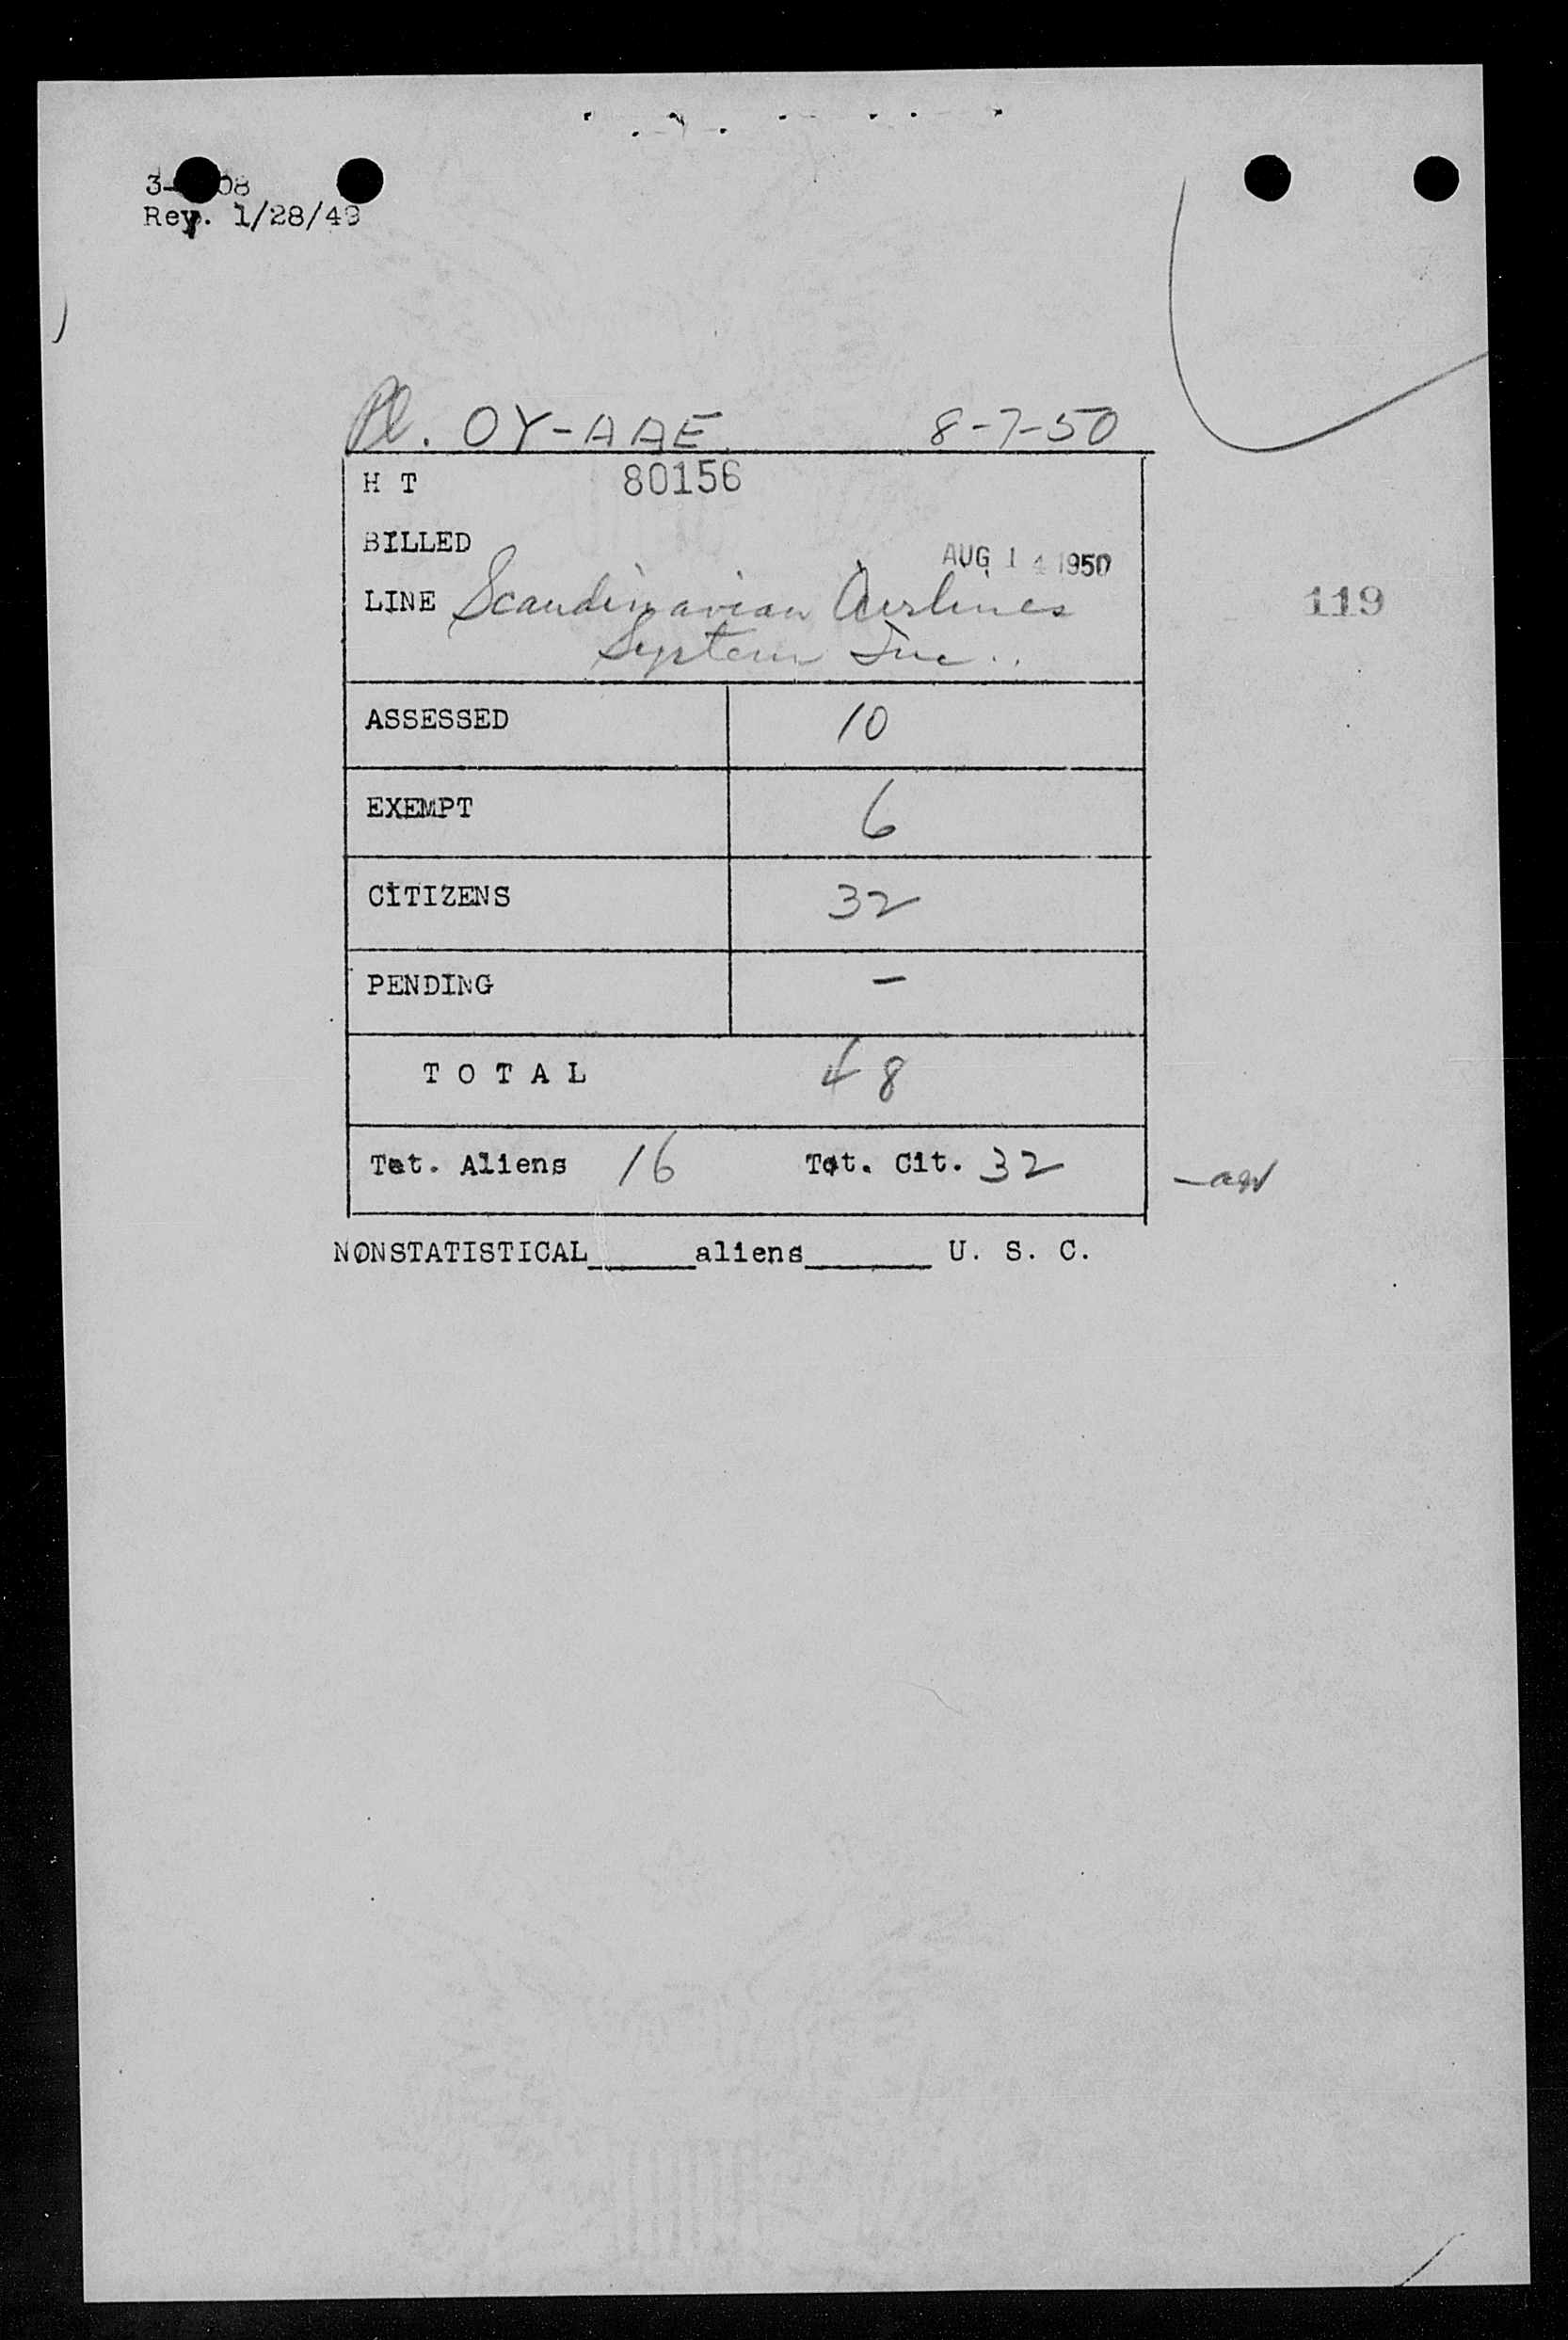 Rev. 1/28/49
Pl. OY-AAE 8-7-50
H T 80156
BILLED
AUG 14 1950
LINE Scandinavian Airlines
System Inc..
119
ASSESSED 10
EXEMPT 6
CITIZENS 32
PENDING -
TOTAL 48
Tot. Aliens 16 Tot. Cit. 32
NONSTATISTICAL______aliens_______ U. S. C.